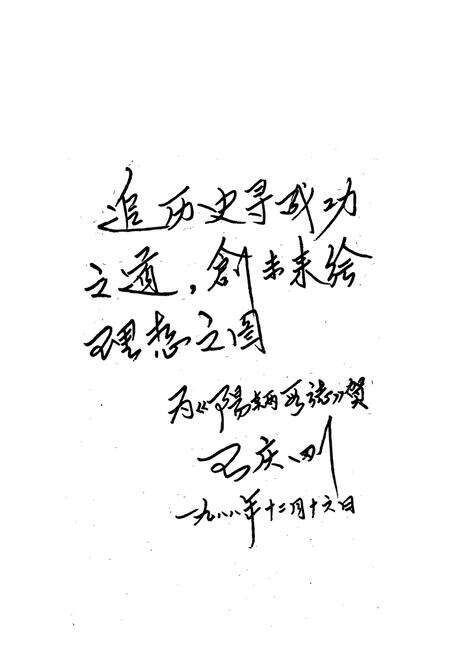 追历史寻成功
之道，創未来绘
理想之图
为《陽柄乡誌》贺
王庆川
一九八八年十二月十六日